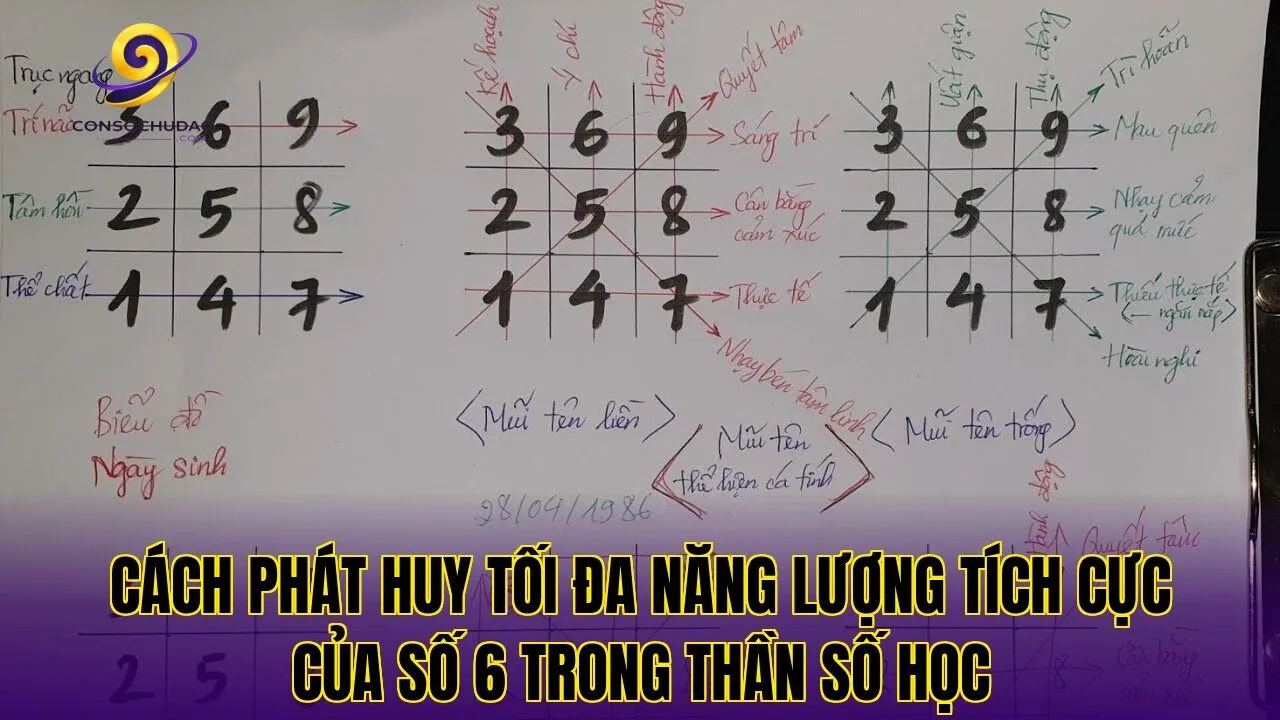 Trục ngang
Trí não
Tâm hồn
Thể chất
CONSOCHUDAO
.COM
3 6 9
2 5 8
1 4 7
Biểu đồ
Ngày sinh
Kế hoạch
Ý chí
Hành động
Quyết tâm
3 6 9
Sáng trí
2 5 8
Cân bằng
cảm xúc
1 4 7
Thực tế
Nhạy bén tâm linh
<Mũi tên liền>
Mũi tên
thể hiện cá tính
28/04/1986
Uất giận
Thụ động
Trì hoãn
3 6 9
Mau quên
2 5 8
Nhạy cảm
quá mức
1 4 7
Thiếu thực tế
ngăn nắp
Hoài nghi
<Mũi tên trống>
Hành động
Cân bằng
2 5
8
CÁCH PHÁT HUY TỐI ĐA NĂNG LƯỢNG TÍCH CỰC
CỦA SỐ 6 TRONG THẦN SỐ HỌC